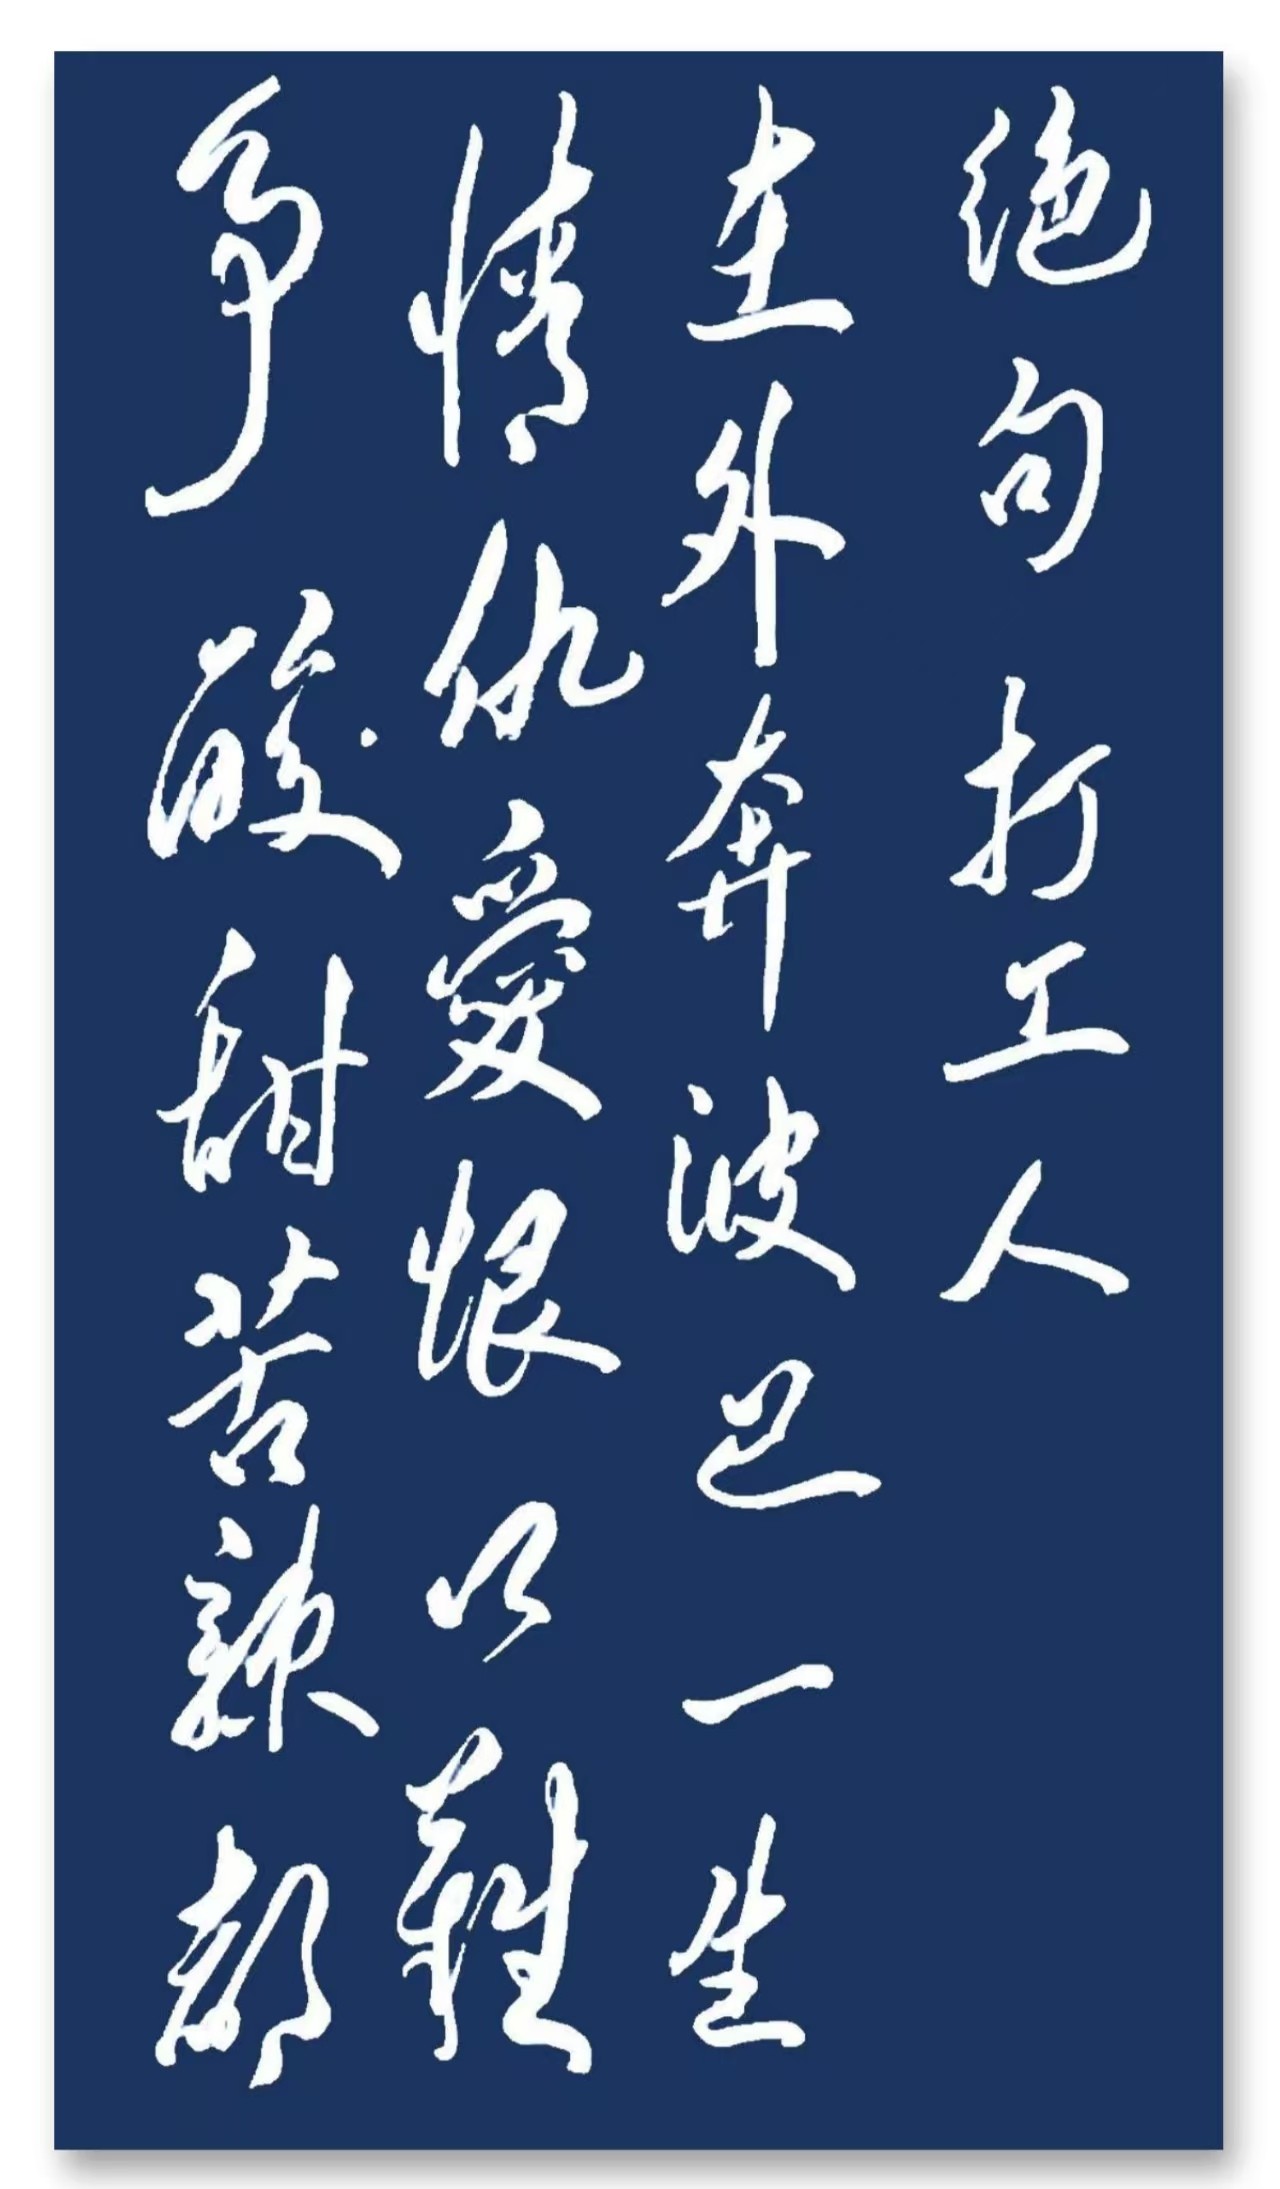 绝句 打工人
在外奔波已一生
情仇爱恨以难
争酸甜苦辣都